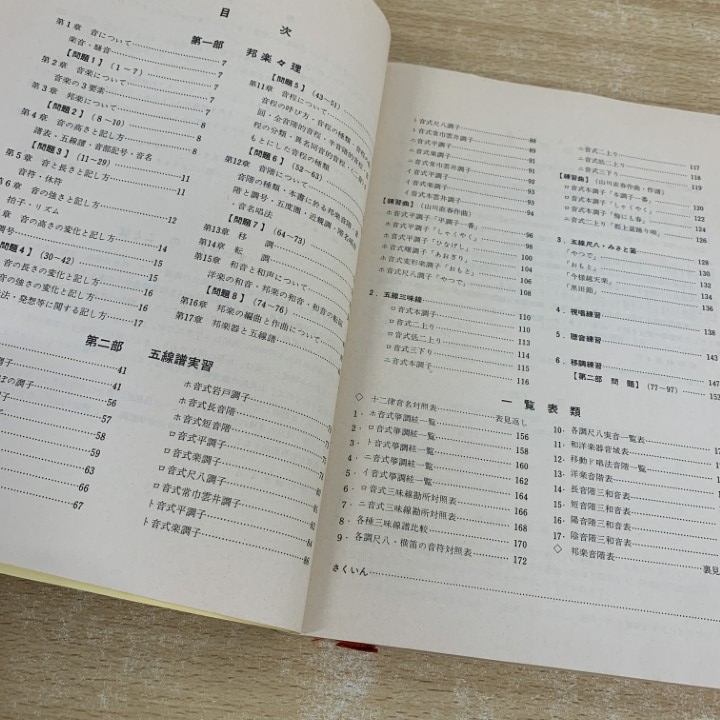 目 次
第一部 邦楽々理
第1章 音について……7
楽音・騒音……7
【問題1】(1～7)
第2章 音楽について……7
音楽の3要素……7
第3章 邦楽について……8
【問題2】(8～10)
第4章 音の高さと記し方……8
譜表・五線譜・音部記号・音名
【問題3】(11～29)
第5章 音と長さと記し方……11
音符・休符……11
第6章 音の強さと記し方……12
拍子・リズム
章 音の高さの変化と記し方……14
調号……15
問題4】(30～42)
音の長さの変化と記し方……16
音の強さの変化と記し方……16
法・発想等に関する記し方……17
【問題5】(43～51)
第11章 音程について……
音程の呼び方・音程の種類
【問題6】(52～63)
第12章 音階について……
【問題7】(64～73)
第13章 移 調
第14章 転 調
第15章 和音と和声について……
洋楽の和音・邦楽の和音・和音の転回
【問題8】(74～76)
第16章 邦楽の編曲と作曲について……
第17章 邦楽器と五線譜……
第二部 五線譜実習
調子……41
ぼの調子……56
子……57
……58
……59
……63
……66
……67
ホ音式岩戸調子……
ホ音式長音階……
ホ音式短音階……
ロ音式平調子……
ロ音式楽調子……
ロ音尺八調子……
ロ音式常巾雲井調子……
ト音式平調子……
ト音式楽調子……
ト音式尺八調子……88
ト音式常巾雲井調子……89
ニ音式平調子……90
ニ音式楽調子……91
ニ音式常巾雲井調子……91
イ音式平調子……92
イ音式楽調子……93
イ音式本雲井調子……94
【練習曲】(山川直春作曲)
ホ音式平調子「平調子一番」……96
ホ音式平調子「しゃくやく」……98
ホ音式平調子「ひなげし」……100
ホ音式曙調子「あおぎり」……102
ホ音式変形楽調子「おもと」……104
ホ音式尺八調子「やつで」……106
108
2．五線三味線……110
ロ音式本調子……110
ロ音式二上り……111
ロ音式低二上り……113
ロ音式三下り……114
ニ音式本調子……115
116
ニ音式二上り……117
ニ音式低二上り……118
ニ音式三下り……119
【練習曲】(山川直春作曲・作譜)
ロ音式本調子「本調子一番」……120
ロ音式本調子「しゃくやく」……122
ロ音式本調子「梅にも春」……124
ニ音式二上り「越土盆踊り唄」……126
3．五線尺八・みさと笛
「やつで」……
「おもと」……
「今様越天楽」……
「黒田節」……
4．視唱練習……137
5．聴音練習……143
6．移調練習……147
【第二部 問 題】(77～97)……153
一 覧 表 類
◇ 十二律音名対照表……表見返し
1．ホ音式箏調絃一覧……156
2．ロ音式箏調絃一覧……158
3．ト音式箏調絃一覧……160
4．ニ音式箏調絃一覧……162
5．イ音式箏調絃一覧……164
6．ロ音式三味線勘所対照表……166
7．ニ音式三味線勘所対照表……168
8．各種三味線譜比較……170
9．各調尺八・横笛の音符対照表……172
10．各調尺八実音一覧表……
11．和洋楽器音域表……
12．移動ド唱法音階一覧……
13．洋楽音階表……
14．長音階三和音表……
15．短音階三和音表……
16．陽音階三和音表……
17．陰音階三和音表……
◇ 邦楽音階表……裏見
さくいん……